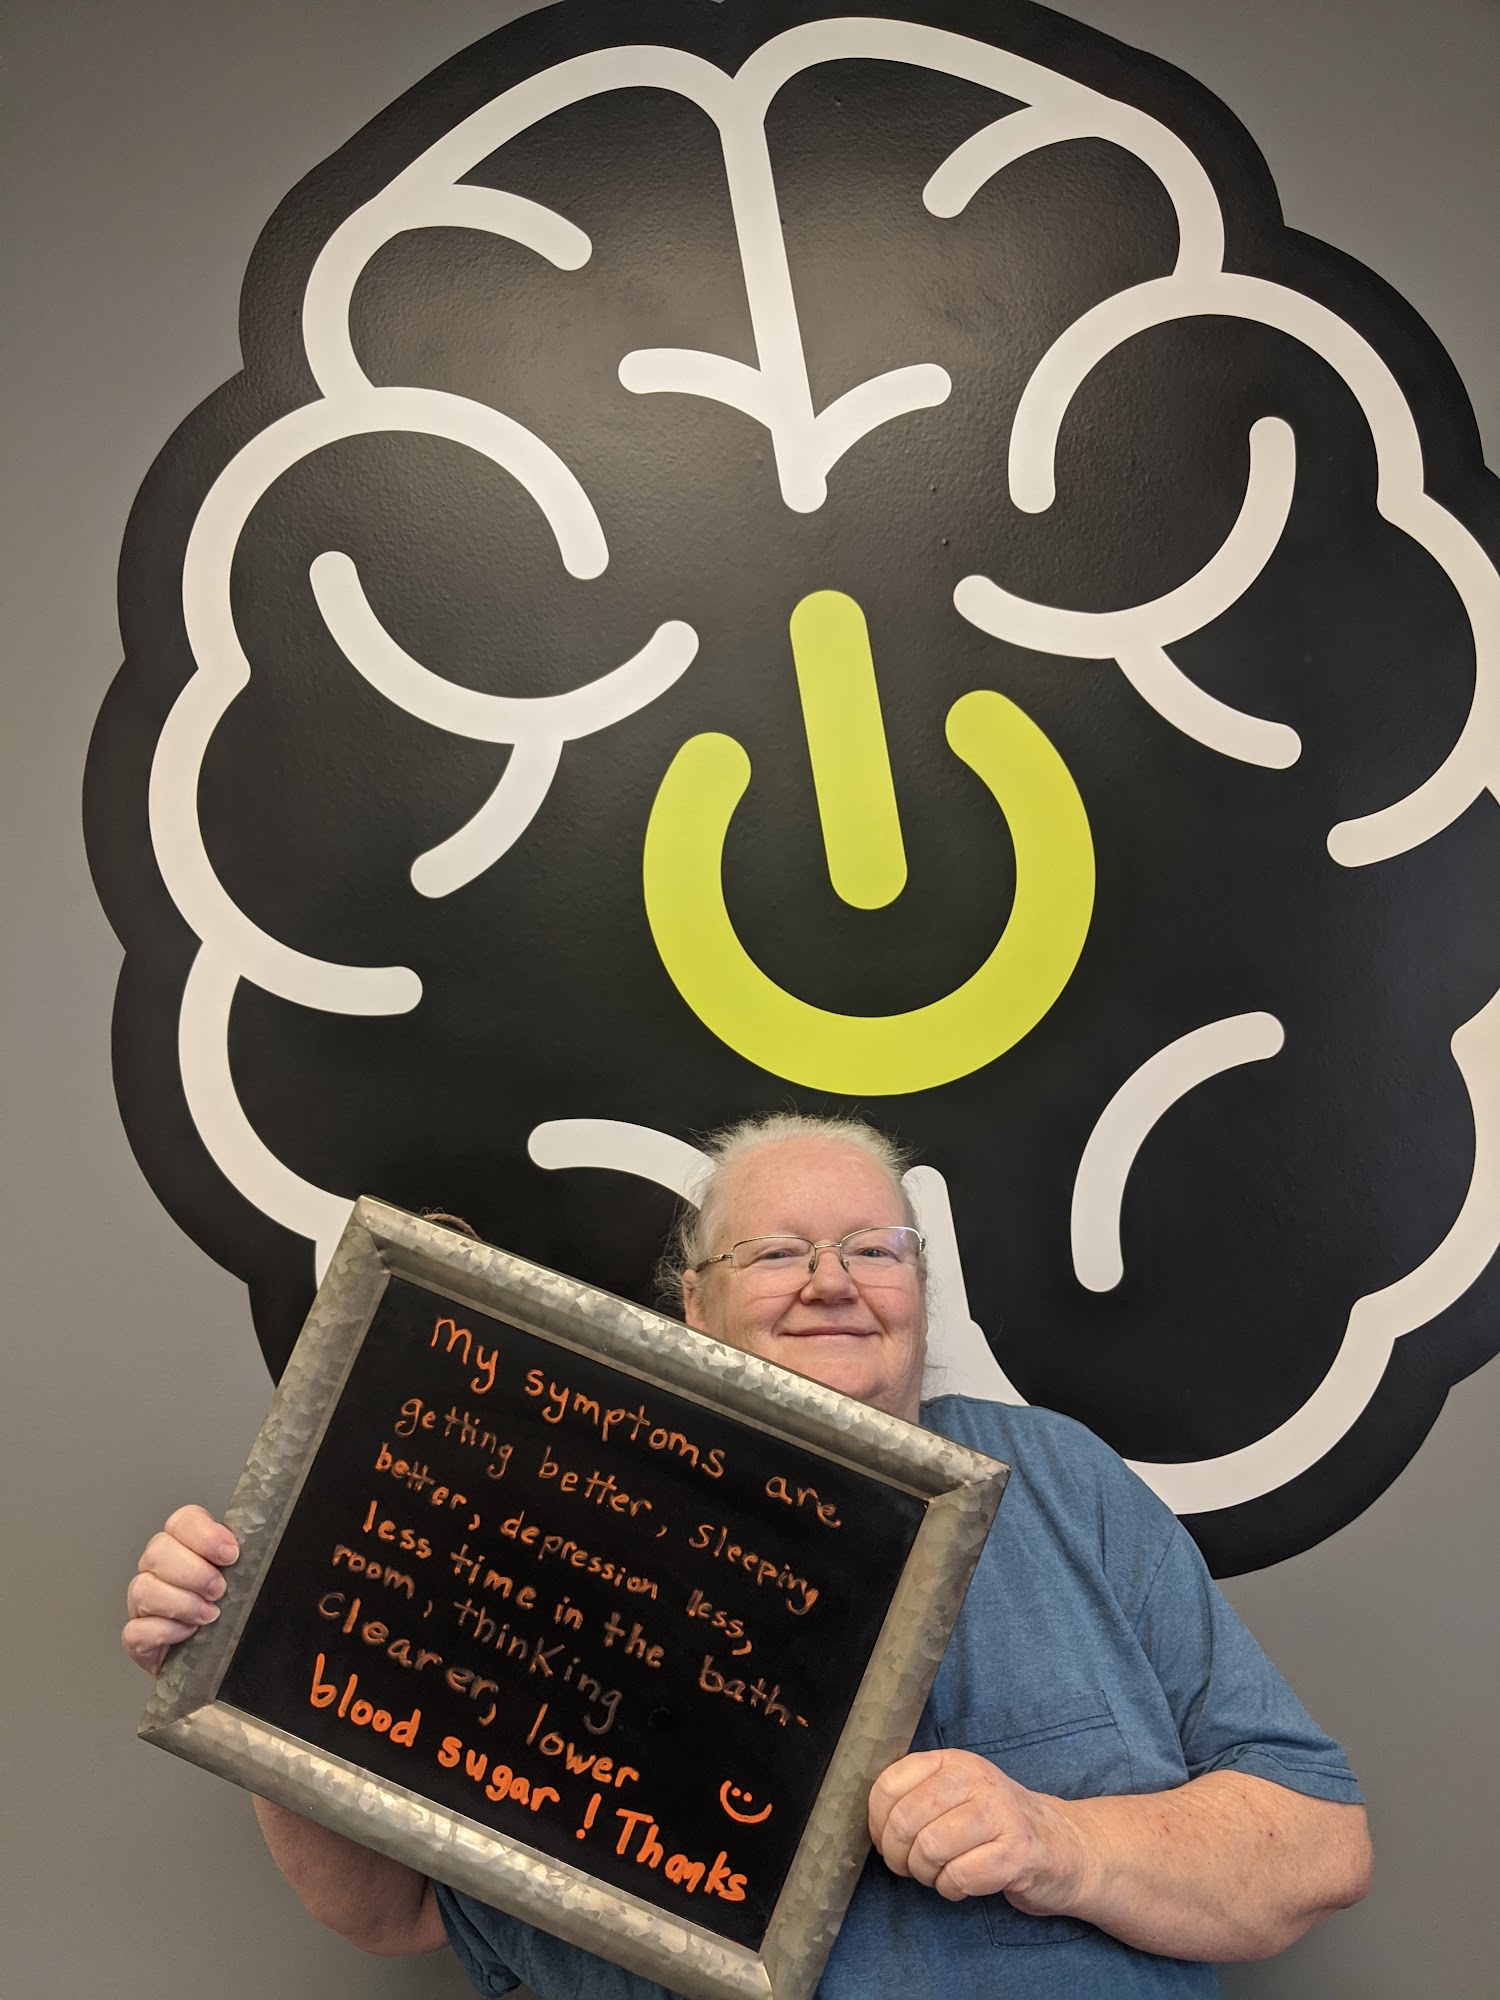 My symptoms are
getting better, sleeping
better, depression less,
less time in the bath-
room, thinking
clearer, lower
blood sugar! Thanks